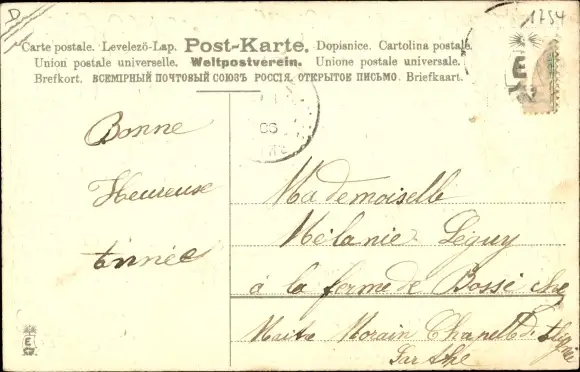 D
1754
Carte postale. Levelező-Lap. Post-Karte. Dopisnice. Cartolina postale.
Union postale universelle. Weltpostverein. Unione postale universale.
Brefkort. ВСЕМІРНЫЙ ПОЧТОВЫЙ СОЮЗЪ РОССІЯ. ОТКРЫТОЕ ПИСЬМО. Briefkaart.
Bonne
Heureuse
Année
Mademoiselle
Mélanie Léguy
à la ferme de Bossé che
Maitre Morain
Sarthe